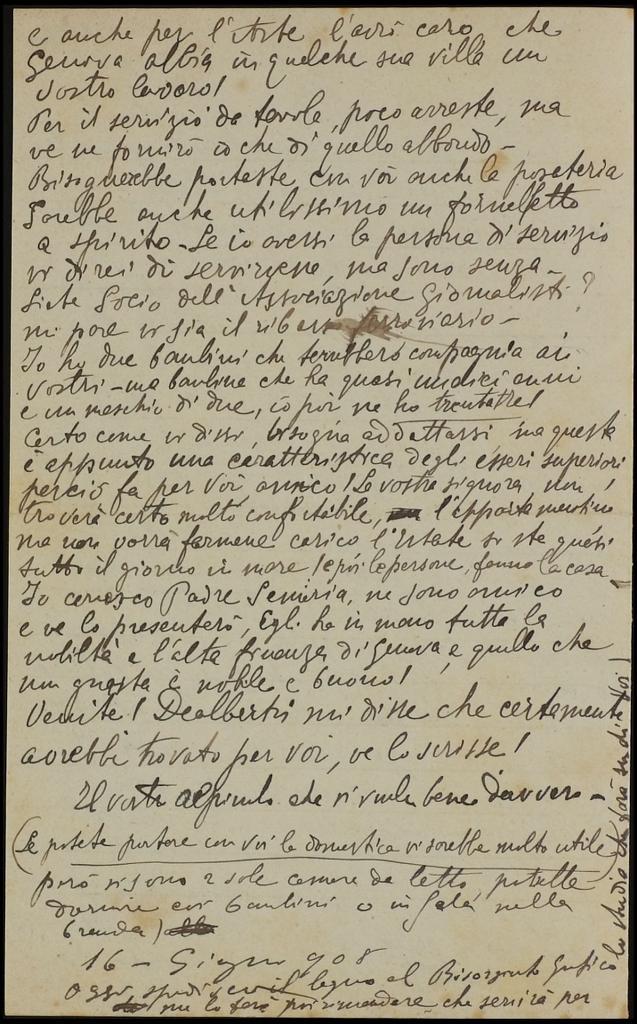 e anche per l'Arte l'avrò caro che
Genova abbia in qualche sua villa un
vostro lavoro!
Per il servizio da tavola, poco avreste, ma
ve ne fornirò io che di quello abbondo –
Bisognerebbe portaste con voi anche la posateria
Sarebbe anche utilissimo un fornelletto
a spirito – Se io avessi la persona di servizio
vi direi di servirvene, ma sono senza –
Siete Socio dell'Associazione Giornalisti?
mi pare vi sia il ribasso ferroviario –
Io ho due bambini che terrebbero compagnia ai
vostri – una bambina che ha quasi undici anni
e un maschio di due, io poi ne ho trentatre!
Certo come vi dissi, bisogna addattarsi, ma questa
è appunto una caratteristica degli esseri superiori
perciò fa per voi, amico! La vostra signora, non
troverà certo molto confortabile, l'appartamentino
ma non vorrà farmene carico l'Estate si sta quasi
tutto il giorno in mare! e poi le persone, fanno la casa
Io conosco Padre Semeria, ne sono amico
e ve lo presenterò, Egli ha in mano tutta la
nobiltà e l'alta finanza di Genova e quello che
non guasta è nobile e buono!
Venite! Dealbertis mi disse che certamente
avrebbe trovato per voi, ve lo scrisse!
Il vostro che vi vuole bene davvero –
(Se potete portare con voi la domestica vi sarebbe molto utile
però vi sono 2 sole camere da letto, potreste
dormire coi bambini o in sala nella
branda)
16 – Giugno 908
Oggi spedii legno al Risorgimento Grafico
me lo farà poi rimandare che servirà per
lo studio che farà su di Voi!